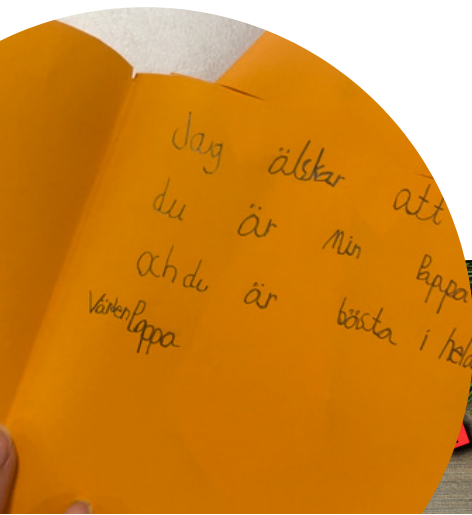 Jag älskar att
du är min Pappa
och du är bästa i hela
Världen Pappa